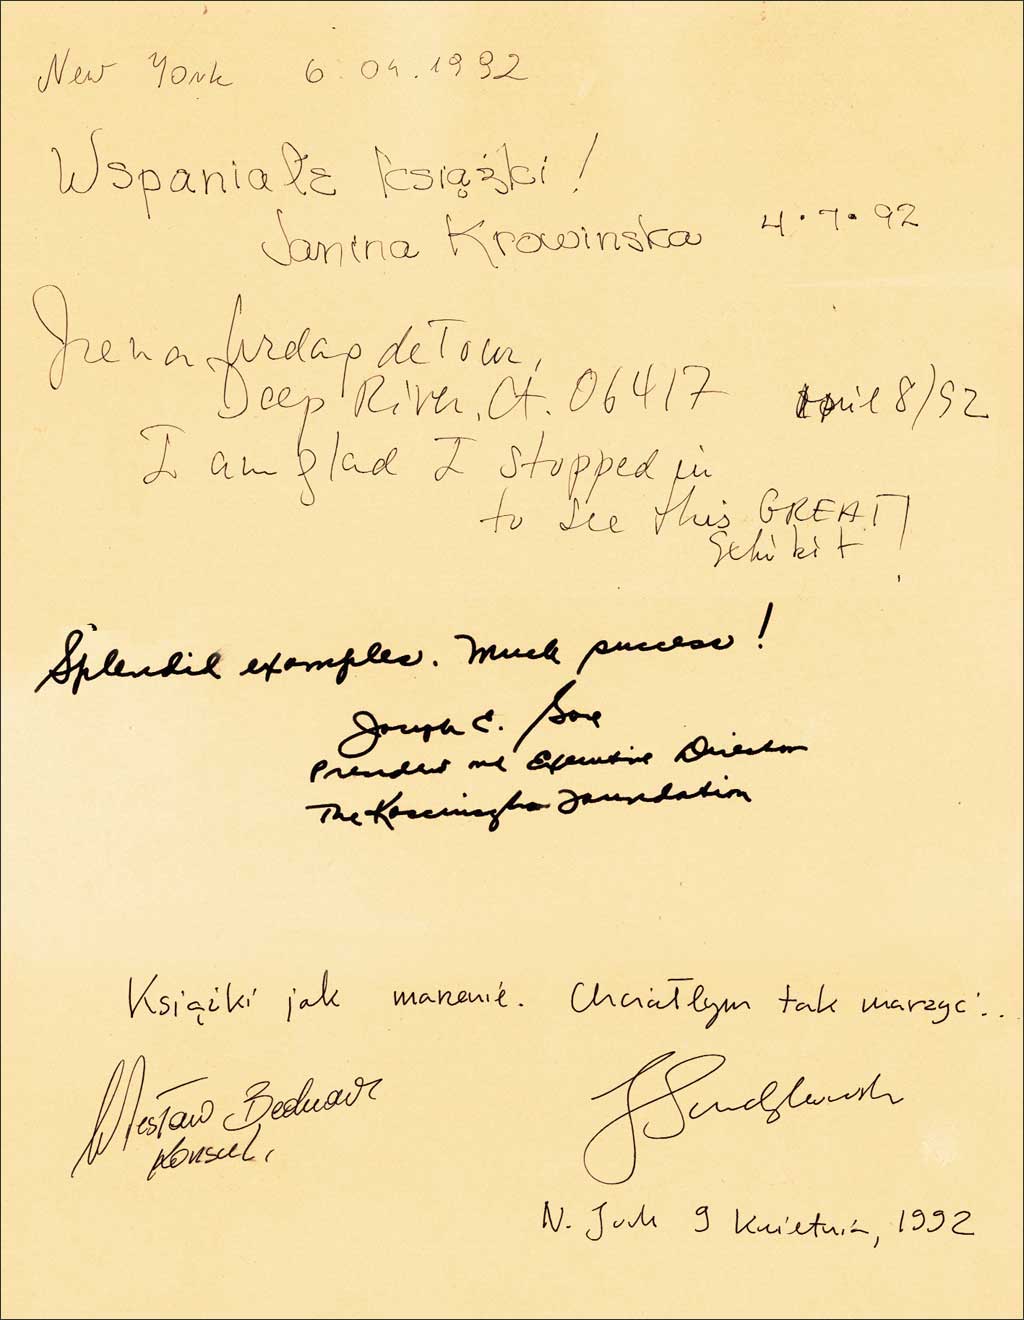 New York 6.04.1992
Wspaniałe książki!
Janina Krowinska 4·7·92
Irena de Tour,
Deep River, Ct. 06417 April 8/92
I am glad I stopped in
to see this GREAT
Exhibit!
Splendid examples. Much success!
Joseph E. Gore
President and Executive Director
The Kosciuszko Foundation
Książki jak marzenie. Chciałbym tak marzyć...
Wiesław Bednarz
Konsul.
N. Jork 9 kwietnia, 1992